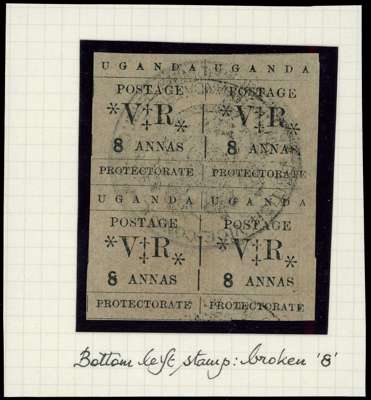 UGANDA UGANDA
POSTAGE POSTAGE
*V‡R* *V‡R*
8 ANNAS 8 ANNAS
PROTECTORATE PROTECTORATE
UGANDA UGANDA
POSTAGE POSTAGE
*V‡R* *V‡R*
8 ANNAS 8 ANNAS
PROTECTORATE PROTECTORATE
Bottom left stamp: broken '8'